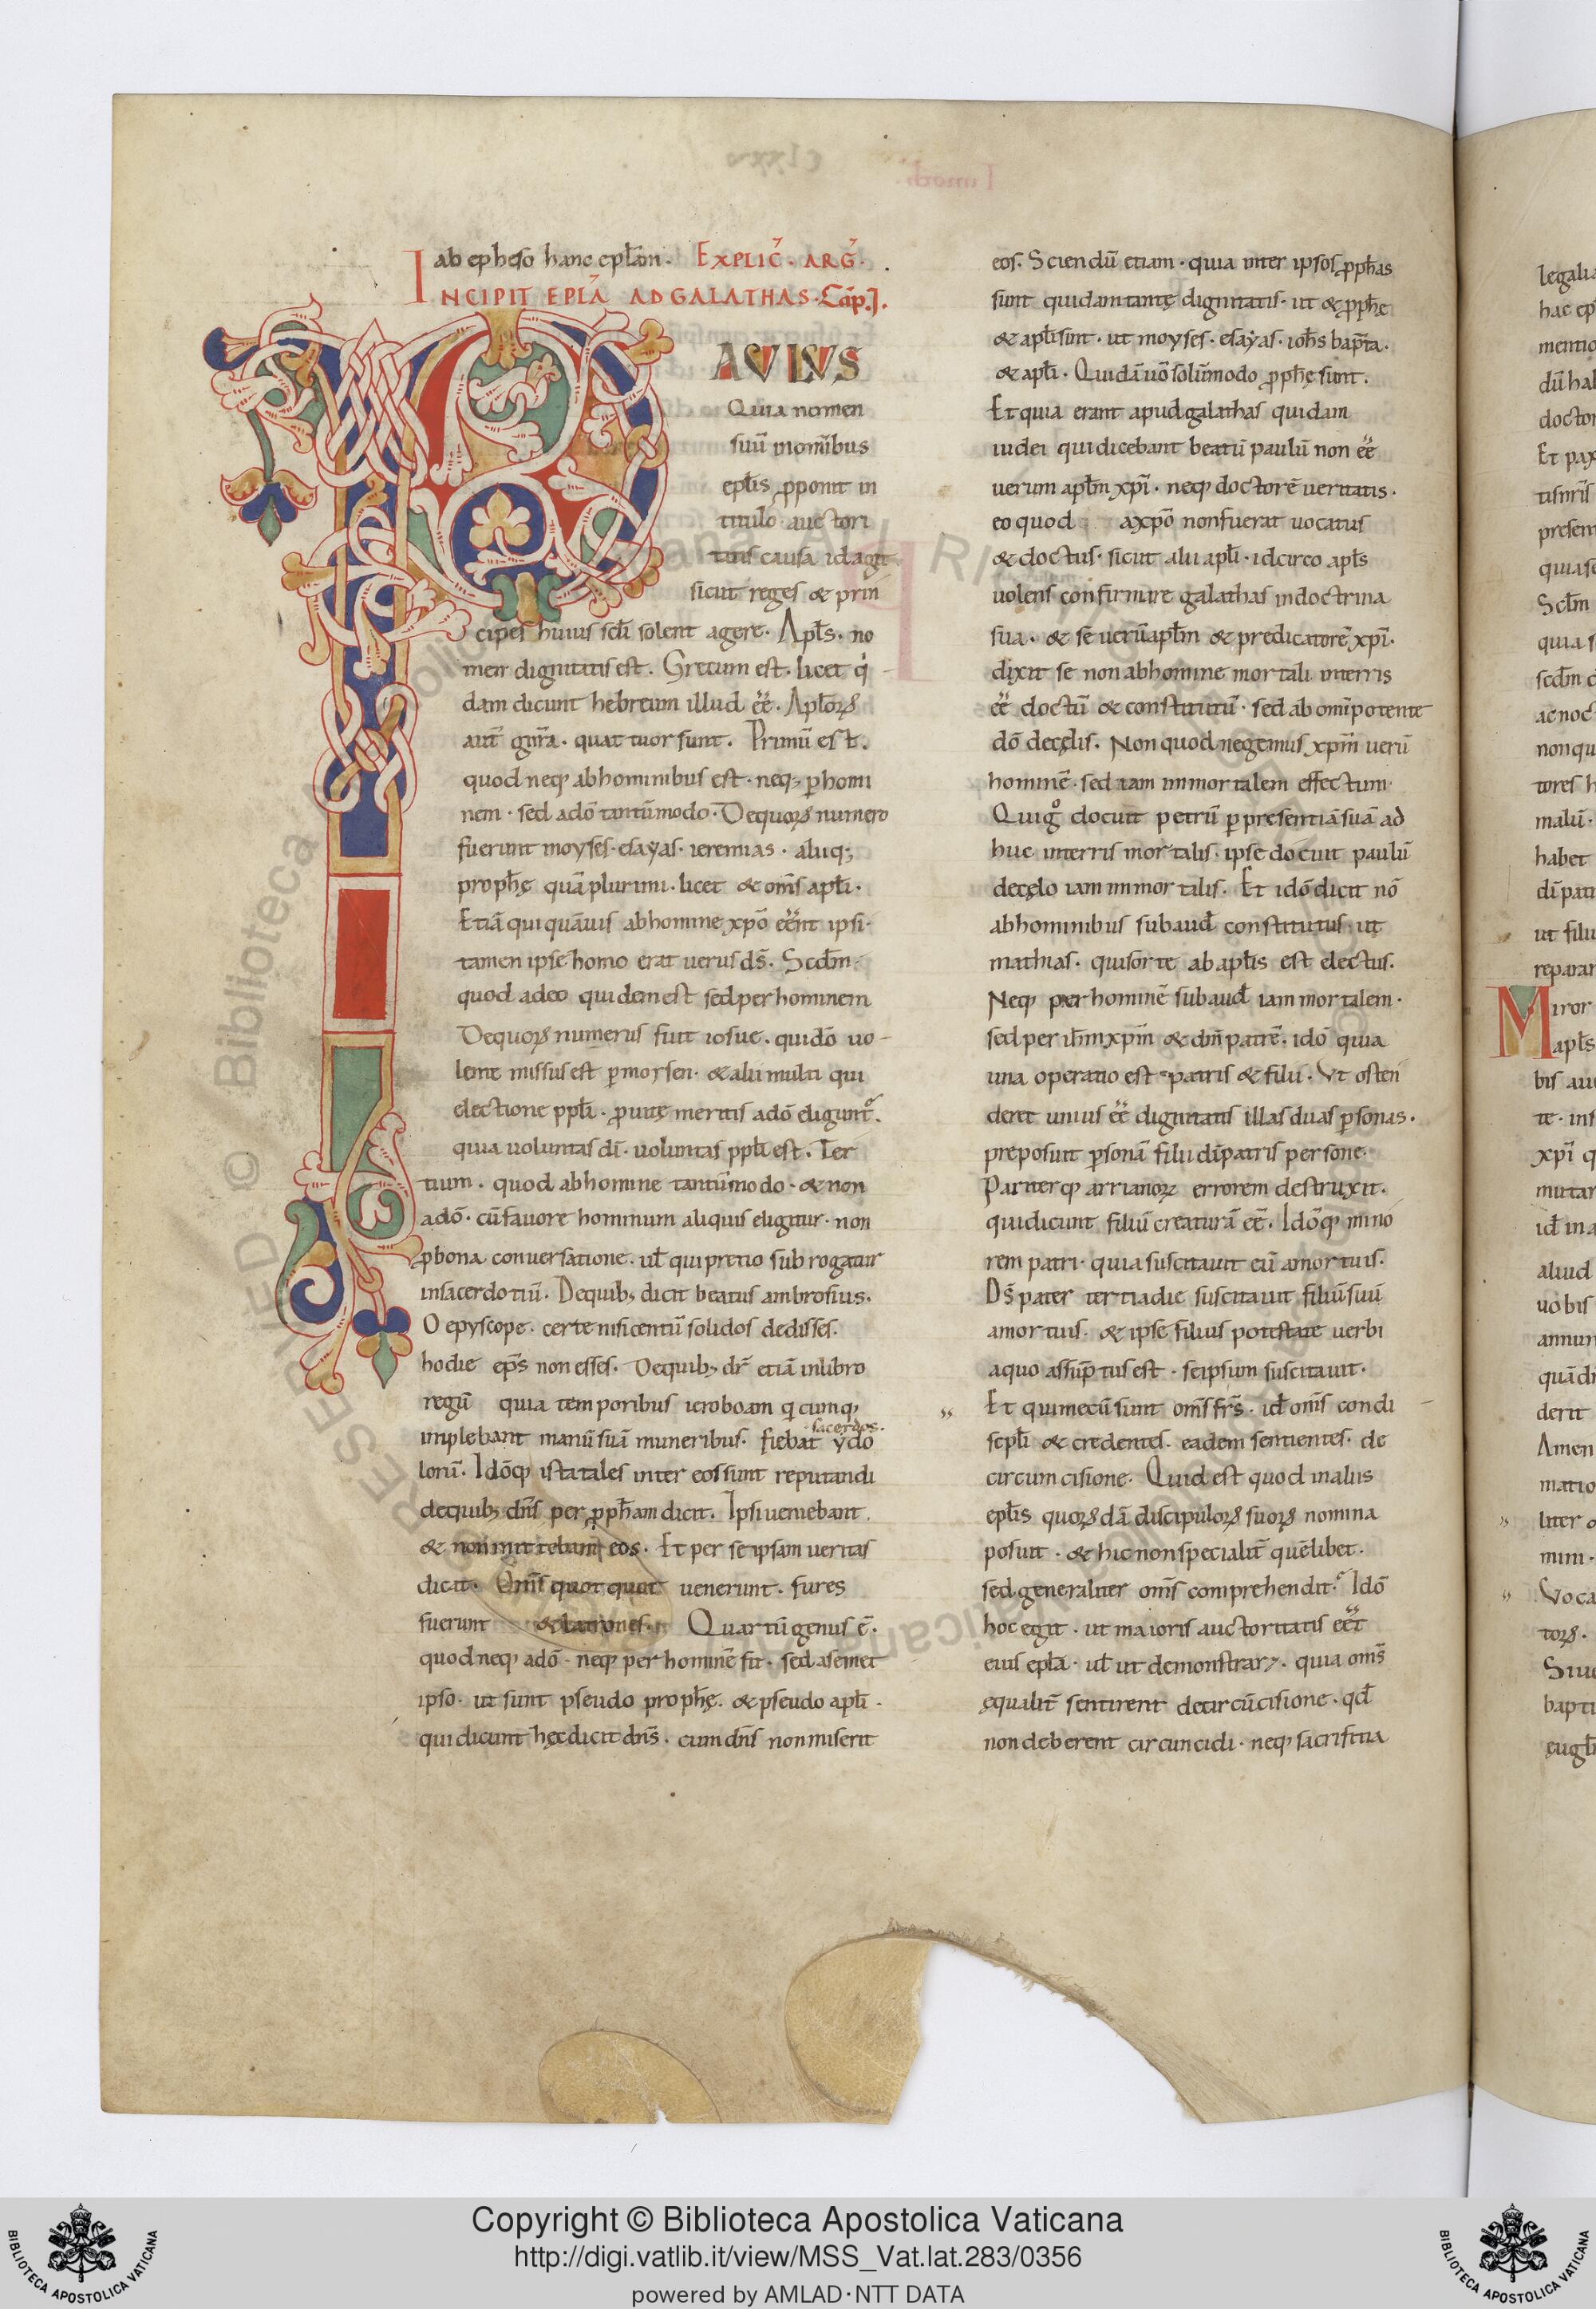 ab epheso hanc epłam. EXPLIC̄. ARḠ.
INCIPIT EPLĀ AD GALATHAS. Cap. I.
PAULUS
Quia nomen
suū inom̄ibus
epłis p̱ponit in
titulo auctori
tatis causa id agit
sicut reges & prin
cipes huius scłi solent agere. Apłs. no
men dignitatis est. Grecum est. licet q̇
dam dicunt hebreum illud eē. Apłoꝝ
aut̄ gn̄ra. quattuor sunt. Primū est.
quod neq; ab hominibus est. neq; ꝑ homi
nem. sed adō tantūmodo. De quoꝝ numero
fuerunt moyses. esayas. ieremias. aliiq;
prophę quā plurimi. licet & om̄s apłi.
Etiā qui quāuis ab homine xp̄o eēnt ipsi.
tamen ipse homo erat uerus ds̄. Scdm̄
quod adeo quidem est sed per hominem
De quoꝝ numerus fuit iosue. quidō uo
lente missus est ꝑ moysen. & alii multi qui
electione pp̄li. ꝓ uitę meritis adō eligunt̄.
quia uoluntas dī. uoluntas pp̄li est. Ter
tium. quod ab homine tantūmodo. & non
adō. cū fauore hominum aliquis eligitur. non
ꝓ bona conuersatione. uł qui pretio subrogatur
in sacerdotiū. De quib; dicit beatus ambrosius.
O epyscope. certe nisi centū solidos dedisses.
hodie ep̄s non esses. De quib; dr̄ etiā in libro
regū quia temporibus ieroboam q̇cumq;
implebant manū suā muneribus. fiebat sacerdos. ydo
lorū. Idōq; ista tales inter eos sunt reputandi
de quib; dn̄s per ꝓph̄am dicit. Ipsi ueniebant
& non mittebam eos. Et per se ipsam ueritas
dicit. Om̄s quotquot uenerunt. fures
fuerunt & latrones. Quartū genus ē.
quod neq; adō. neq; per hominē fit. sed a semet
ipso. ut sunt pseudo prophę. & pseudo apłi.
qui dicunt hęc dicit dn̄s. cum dn̄s non miserit
eos. Sciendū etiam. quia inter ipsos ꝓph̄as
sunt quidam tantę dignitatis. ut & ꝓph̄ę
& apłi sint. ut moyses. esayas. ioh̄s bap̄ta.
& apłi. Quidā uō solūmodo ꝓph̄ę sunt.
Et quia erant apud galathas quidam
iudei qui dicebant beatū paulū non eē
uerum apłm xp̄i. neq; doctorē ueritatis.
eo quod axp̄o non fuerat uocatus
& doctus. sicut alii apłi. idcirco apłs
uolens confirmare galathas in doctrina
sua. & se uerū apłm & predicatorē xp̄i.
dixit se non ab homine mortali in terris
eē doctū & constitutū. sed ab omīpotente
dō decęlis. Non quod negemus xp̄m uerū
hominē. sed iam immortalem effectum.
Qui gͦ docuit petrū ꝑ presentiā suā ad
huc in terris mortalis. ipse docuit paulū
decęlo iam immortalis. Et idō dicit nō
ab hominibus subaud̄ constitutus. ut
mathias. qui sorte ab apłis est electus.
Neq; per hominē subaud̄ iam mortalem.
sed per ih̄m xp̄m & dm̄ patrē. idō quia
una operatio est patris & filii. Ut osten
deret unius eē dignitatis illas duas ꝑsonas.
preposuit ꝑsonā filii dī patris persone.
Pariterq; arrianoꝝ errorem destruxit.
qui dicunt filiū creaturā eē. Idōq; mino
rem patri. quia suscitauit eū a mortuis.
Ds̄ pater tertia die suscitauit filiū suū
a mortuis. & ipse filius potestate uerbi
a quo assūptus est. se ipsum suscitauit.
Et qui mecū sunt om̄s fr̄s. id̄ om̄s condi
scipłi & credentes. eadem sentientes. de
circumcisione. Quid est quod in aliis
epłis quoꝝdā discipuloꝝ suoꝝ nomina
posuit. & hic non specialit̄ quēlibet.
sed generaliter om̄s comprehendit. Idō
hoc egit. ut maioris auctoritatis eēt
eius epłā. uł ut demonstraret. quia om̄s
ęqualit̄ sentirent de circūcisione. qd̄
non deberent circuncidi. neq; sacrificia
legalia
hac ep
mentio
dū hal
doctor
Et pax
tis nr̄is
presen
quia se
Scdm̄
quia s
scdm̄ c
ac noc
non qu
tores h
malū.
habet
dī pati
ut filiu
reparar
Miror
apłs
bis au
te. ins
xp̄i q
mutar
id̄ in a
aliud
uobis
annun
quā di
derit
Amen
matio
liter o
mini.
Uoca
toꝝ.
Siue
bapti
eugł
Copyright © Biblioteca Apostolica Vaticana
http://digi.vatlib.it/view/MSS_Vat.lat.283/0356
powered by AMLAD·NTT DATA
BIBLIOTECA APOSTOLICA VATICANA
BIBLIOTECA APOSTOLICA VATICANA